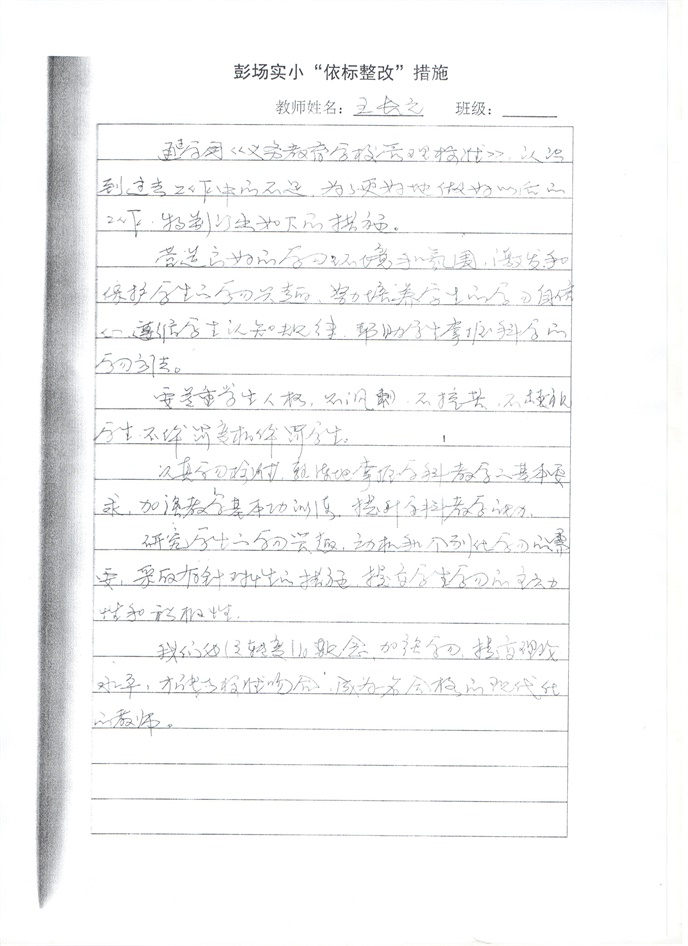 彭场实小“依标整改”措施
教师姓名：王长之 班级：
通学习《义务教育学校管理标准》，认识
到过去工作中的不足，为了更好地做好以后的
工作，特制订出如下的措施。
营造良好的学习环境和氛围，激发和
保护学生的学习兴趣，努力培养学生的学习自信
心，遵循学生认知规律，帮助学生掌握科学的
学习方法。
要尊重学生人格，不讽刺，不挖苦，不歧视
学生，不体罚变相体罚学生。
认真学习标准，熟练地掌握学科教学之基本要
求，加强教学基本功训练，提升学科教学能力。
研究学生之学习兴趣，动机和个别化学习的需
要，采取有针对性的措施，提高学生学习的主动
性和积极性。
我们必须转变观念，加强学习，提高理论
水平，才能与标准吻合，成为名合格的现代化
的教师。